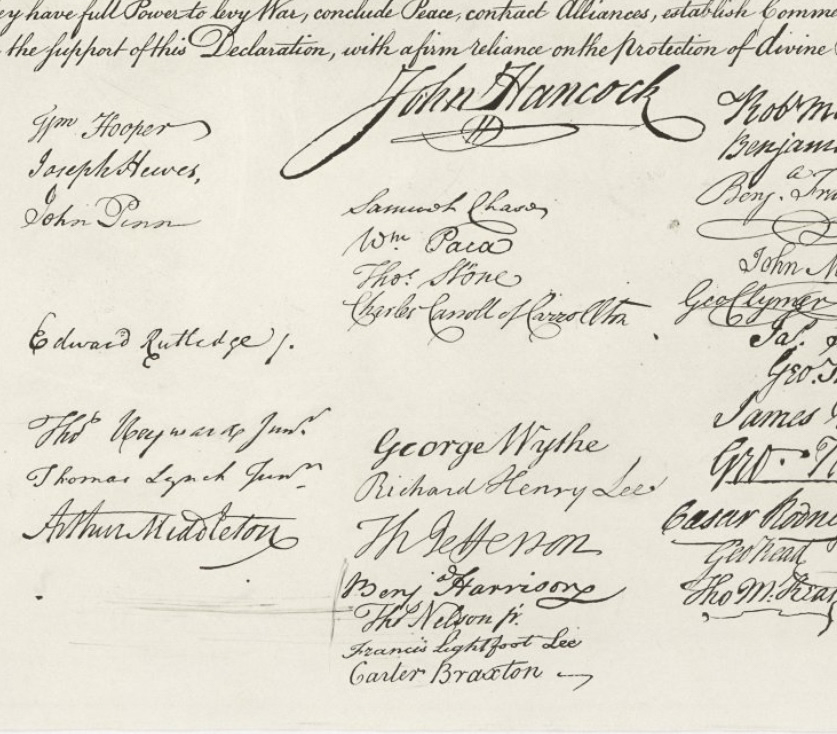 ey have full Power to levy War, conclude Peace, contract Alliances, establish Comm
the support of this Declaration, with a firm reliance on the Protection of divine
John Hancock
Wm Hooper
Joseph Hewes,
John Penn
Edward Rutledge /.
Thos Heyward Junr.
Thomas Lynch Junr.
Arthur Middleton
Samuel Chase
Wm Paca
Thos Stone
Charles Carroll of Carrollton
George Wythe
Richard Henry Lee
Th Jefferson
Benj Harrison
Thos Nelson jr.
Francis Lightfoot Lee
Carter Braxton
Robt M
Benjami
Benja. Fra
John M
Geo Clymer
Jas. S
Geo. T
James
Geo. R
Caesar Rodne
Geo Read
Tho M:Kean